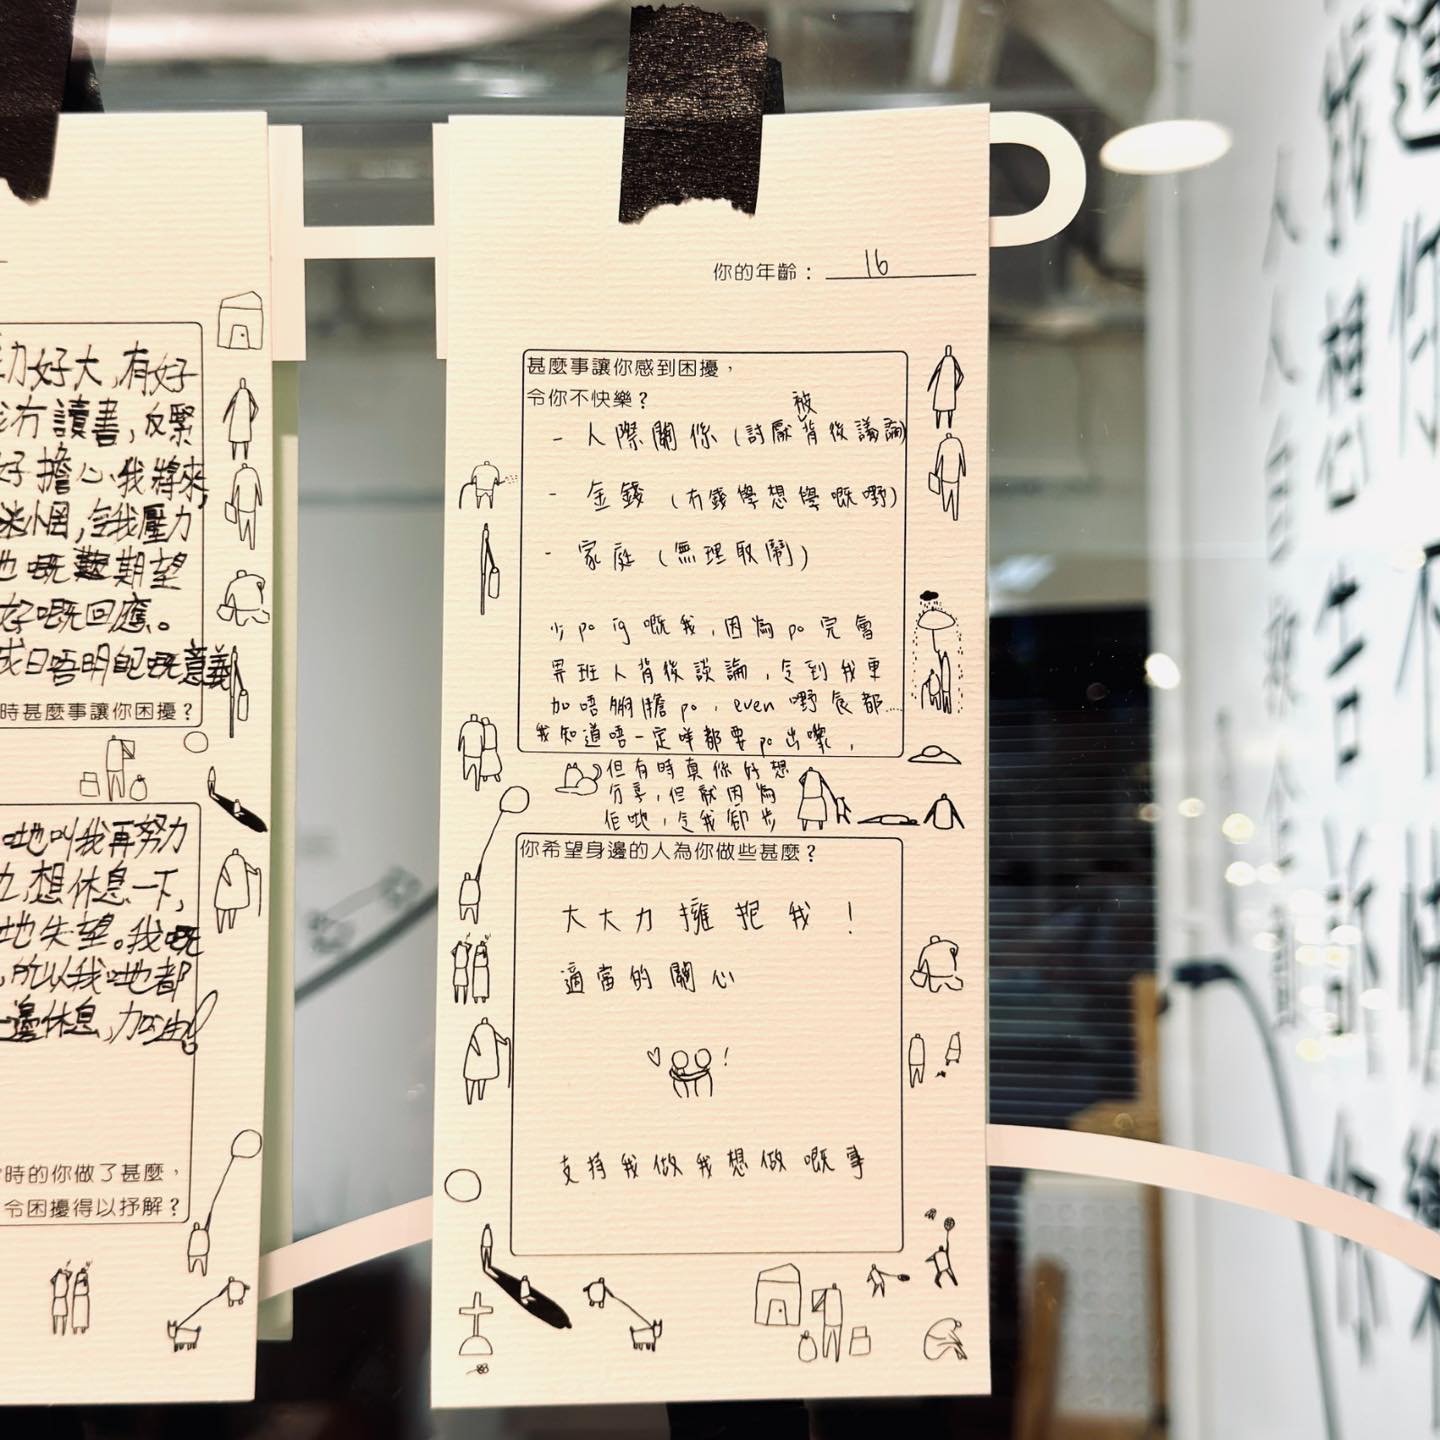 你的年齡：16
甚麼事讓你感到困擾，
令你不快樂？
- 人際關係（討厭被背後議論）
- 金錢（冇錢學想學嘅嘢）
- 家庭（無理取鬧）
少po ig嘅我，因為po完會
畀班人背後談論，令到我更
加唔夠膽po，even 嘢食都......
我知道唔一定咩都要po出嚟，
但有時真係好想
分享，但就因為
佢哋，令我卻步
你希望身邊的人為你做些甚麼？
大大力擁抱我！
適當的關心
支持我做我想做嘅事
力好大，有好
冇讀書，反緊
好擔心我將來
令我壓力
也嘅期望
好嘅回應。
或日唔明白嘅意義
時甚麼事讓你困擾？
哋叫我再努力
想休息一下，
哋失望。我嘅
，所以我哋都
一邊休息，加油！
時的你做了甚麼，
令困擾得以抒解？
我想告訴你